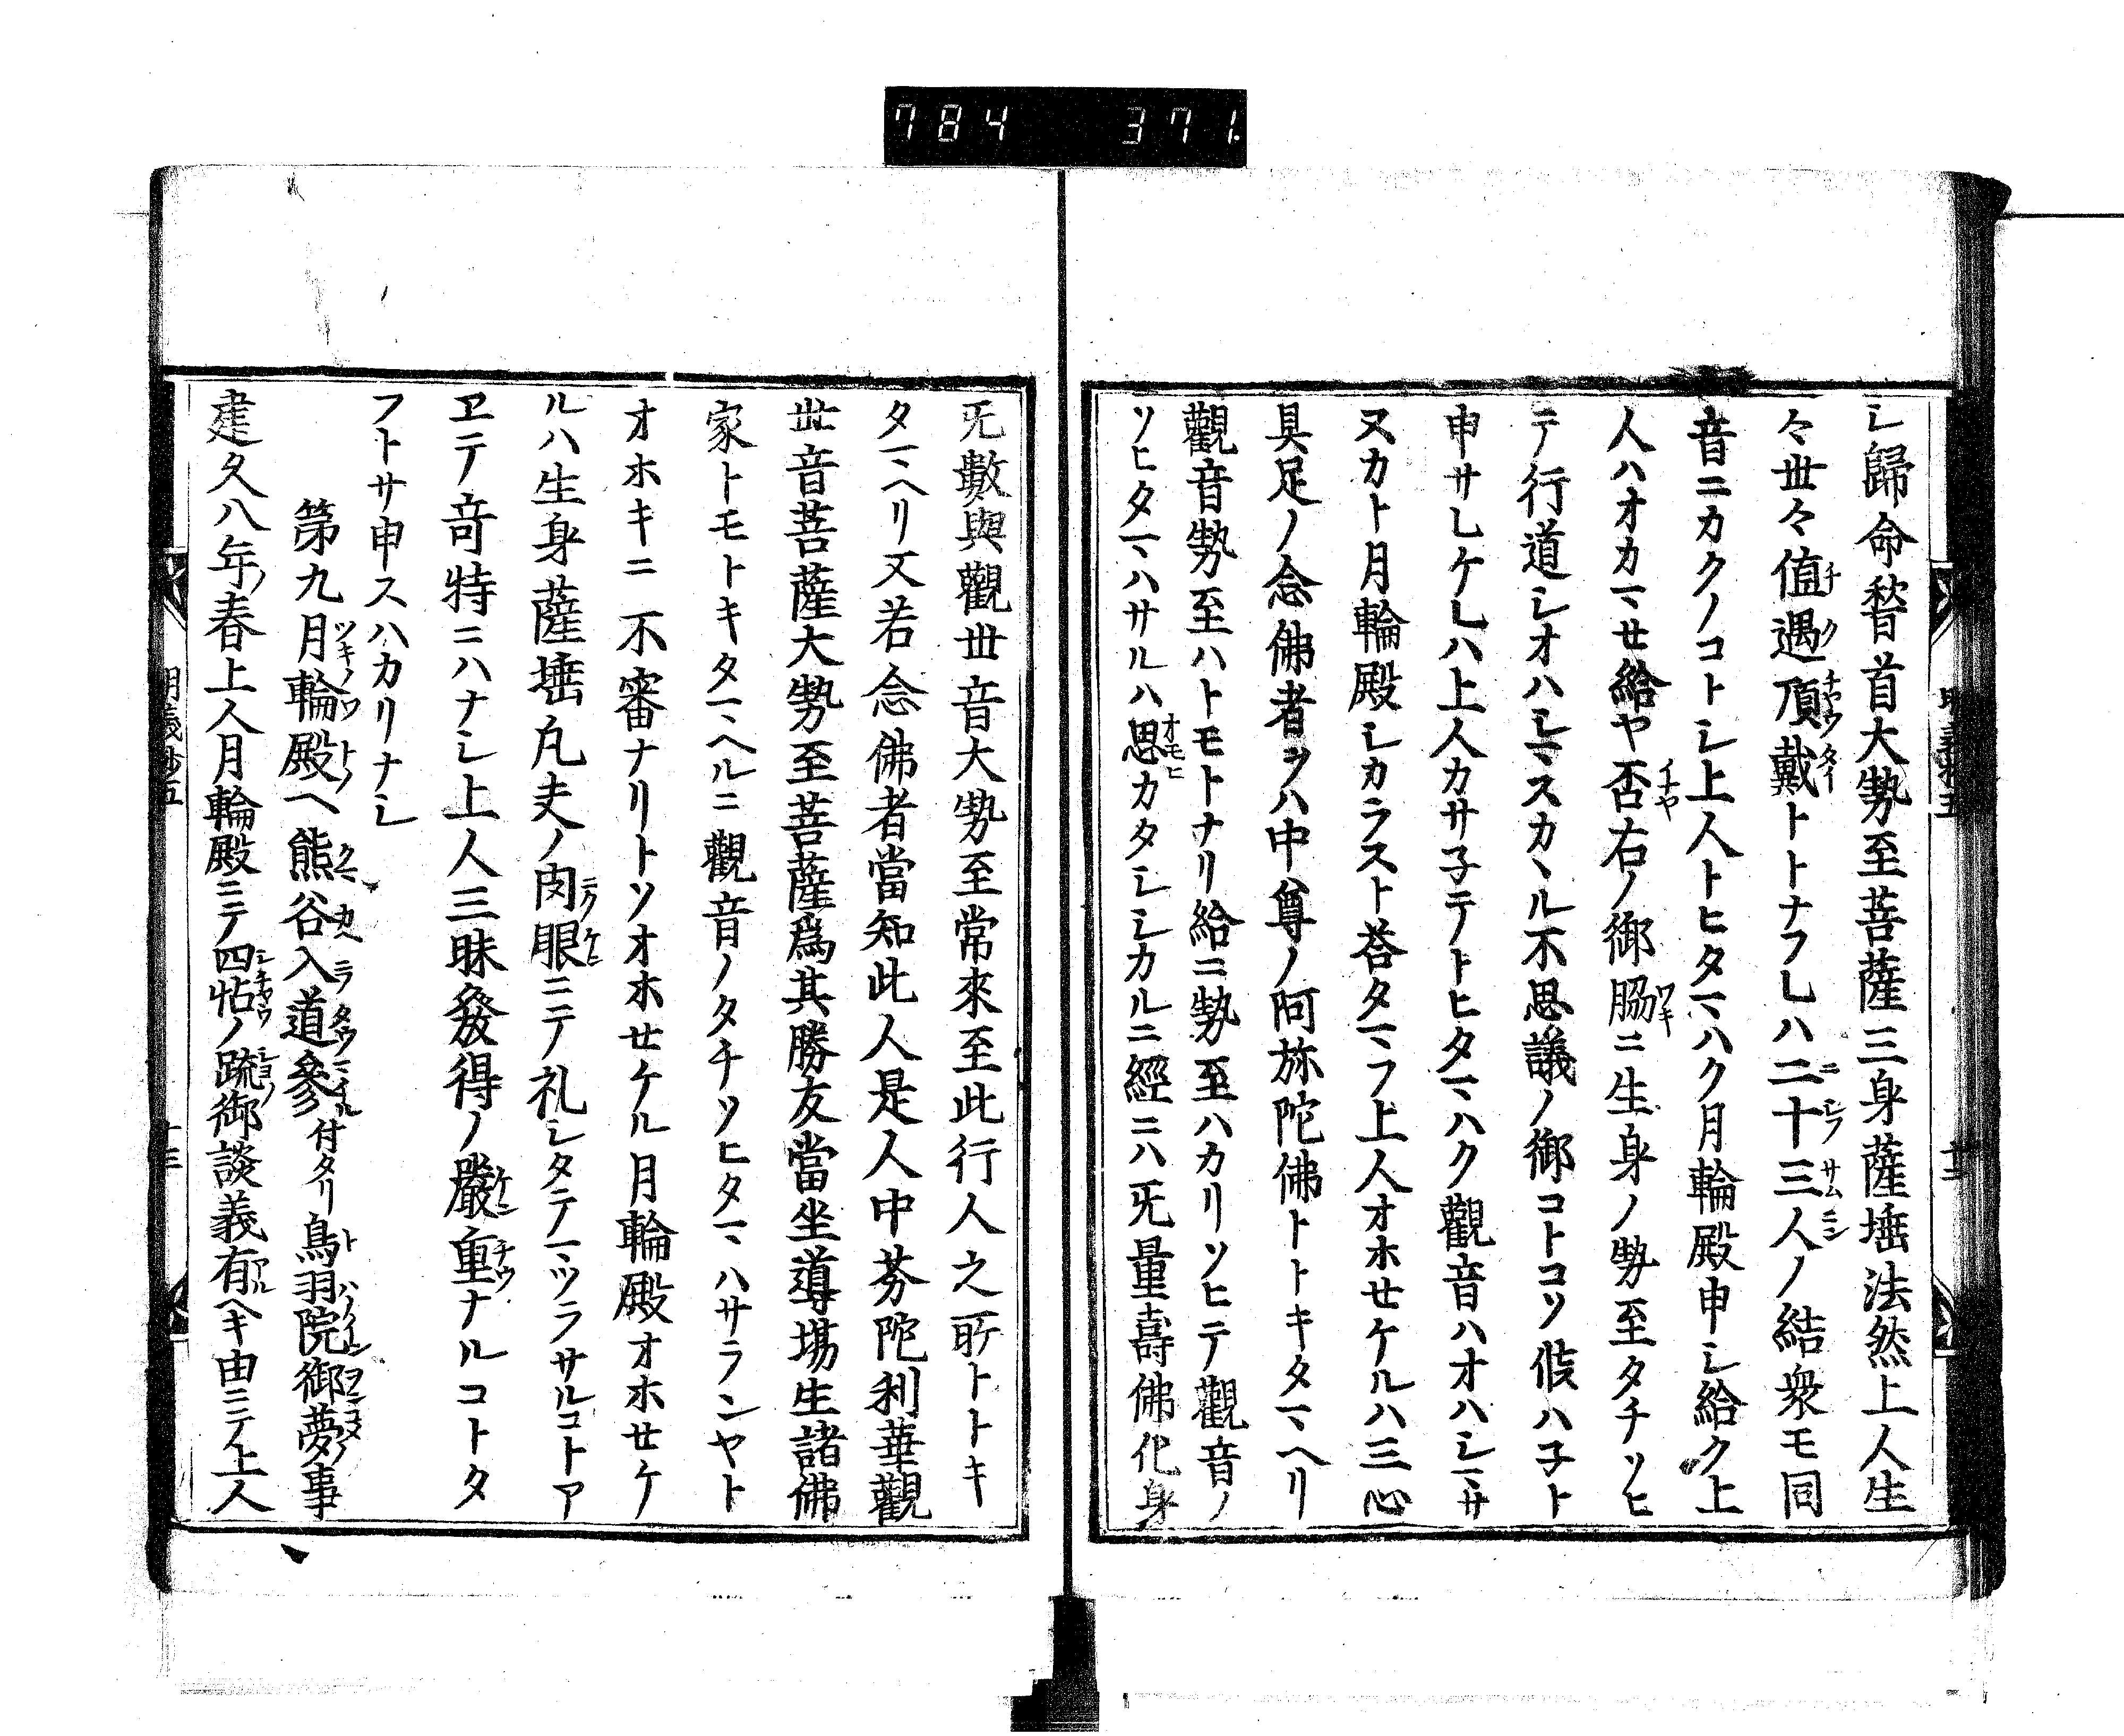 784 371
シ歸命𥡴首大勢至菩薩三身薩埵法然上人生
々世々値遇頂戴トトナフレハ二十三人ノ結衆モ同
音ニカクノコトシ上人トヒタマハク月輪殿申シ給ク上
人ハオカマセ給ヤ否右ノ御脇ニ生身ノ勢至タチソヒ
テ行道シオハシマスカヽル不思議ノ御コトコソ候ハ子ト
申サレケレハ上人カサ子テトヒタマハク觀音ハオハシマサ
ヌカト月輪殿シカラスト荅タマフ上人オホセケルハ三心
具足ノ念佛者ヲハ中尊ノ阿弥陀佛トトキタマヘリ
觀音勢至ハトモトナリ給ニ勢至ハカリソヒテ觀音ノ
ソヒタマハサルハ思カタシシカルニ經ニハ旡量壽佛化身
旡數與觀世音大勢至常來至此行人之所トトキ
タマヘリ又若念佛者當知此人是人中芬陀利華觀
世音菩薩大勢至菩薩爲其勝友當坐道場生諸佛
家トモトキタマヘルニ觀音ノタチソヒタマハサランヤト
オホキニ不審ナリトソオホセケル月輪殿オホセケ
ルハ生身薩埵凡夫ノ肉眼ニテ礼シタテマツラサルコトア
ヱテ奇特ニハナシ上人三昧發得ノ嚴重ナルコトタ
フトサ申スハカリナシ
第九月輪殿ヘ熊谷入道參付タリ鳥羽院御夢事
建久八年ノ春上人月輪殿ニテ四帖ノ疏御談義有ヘキ由ニテ上人